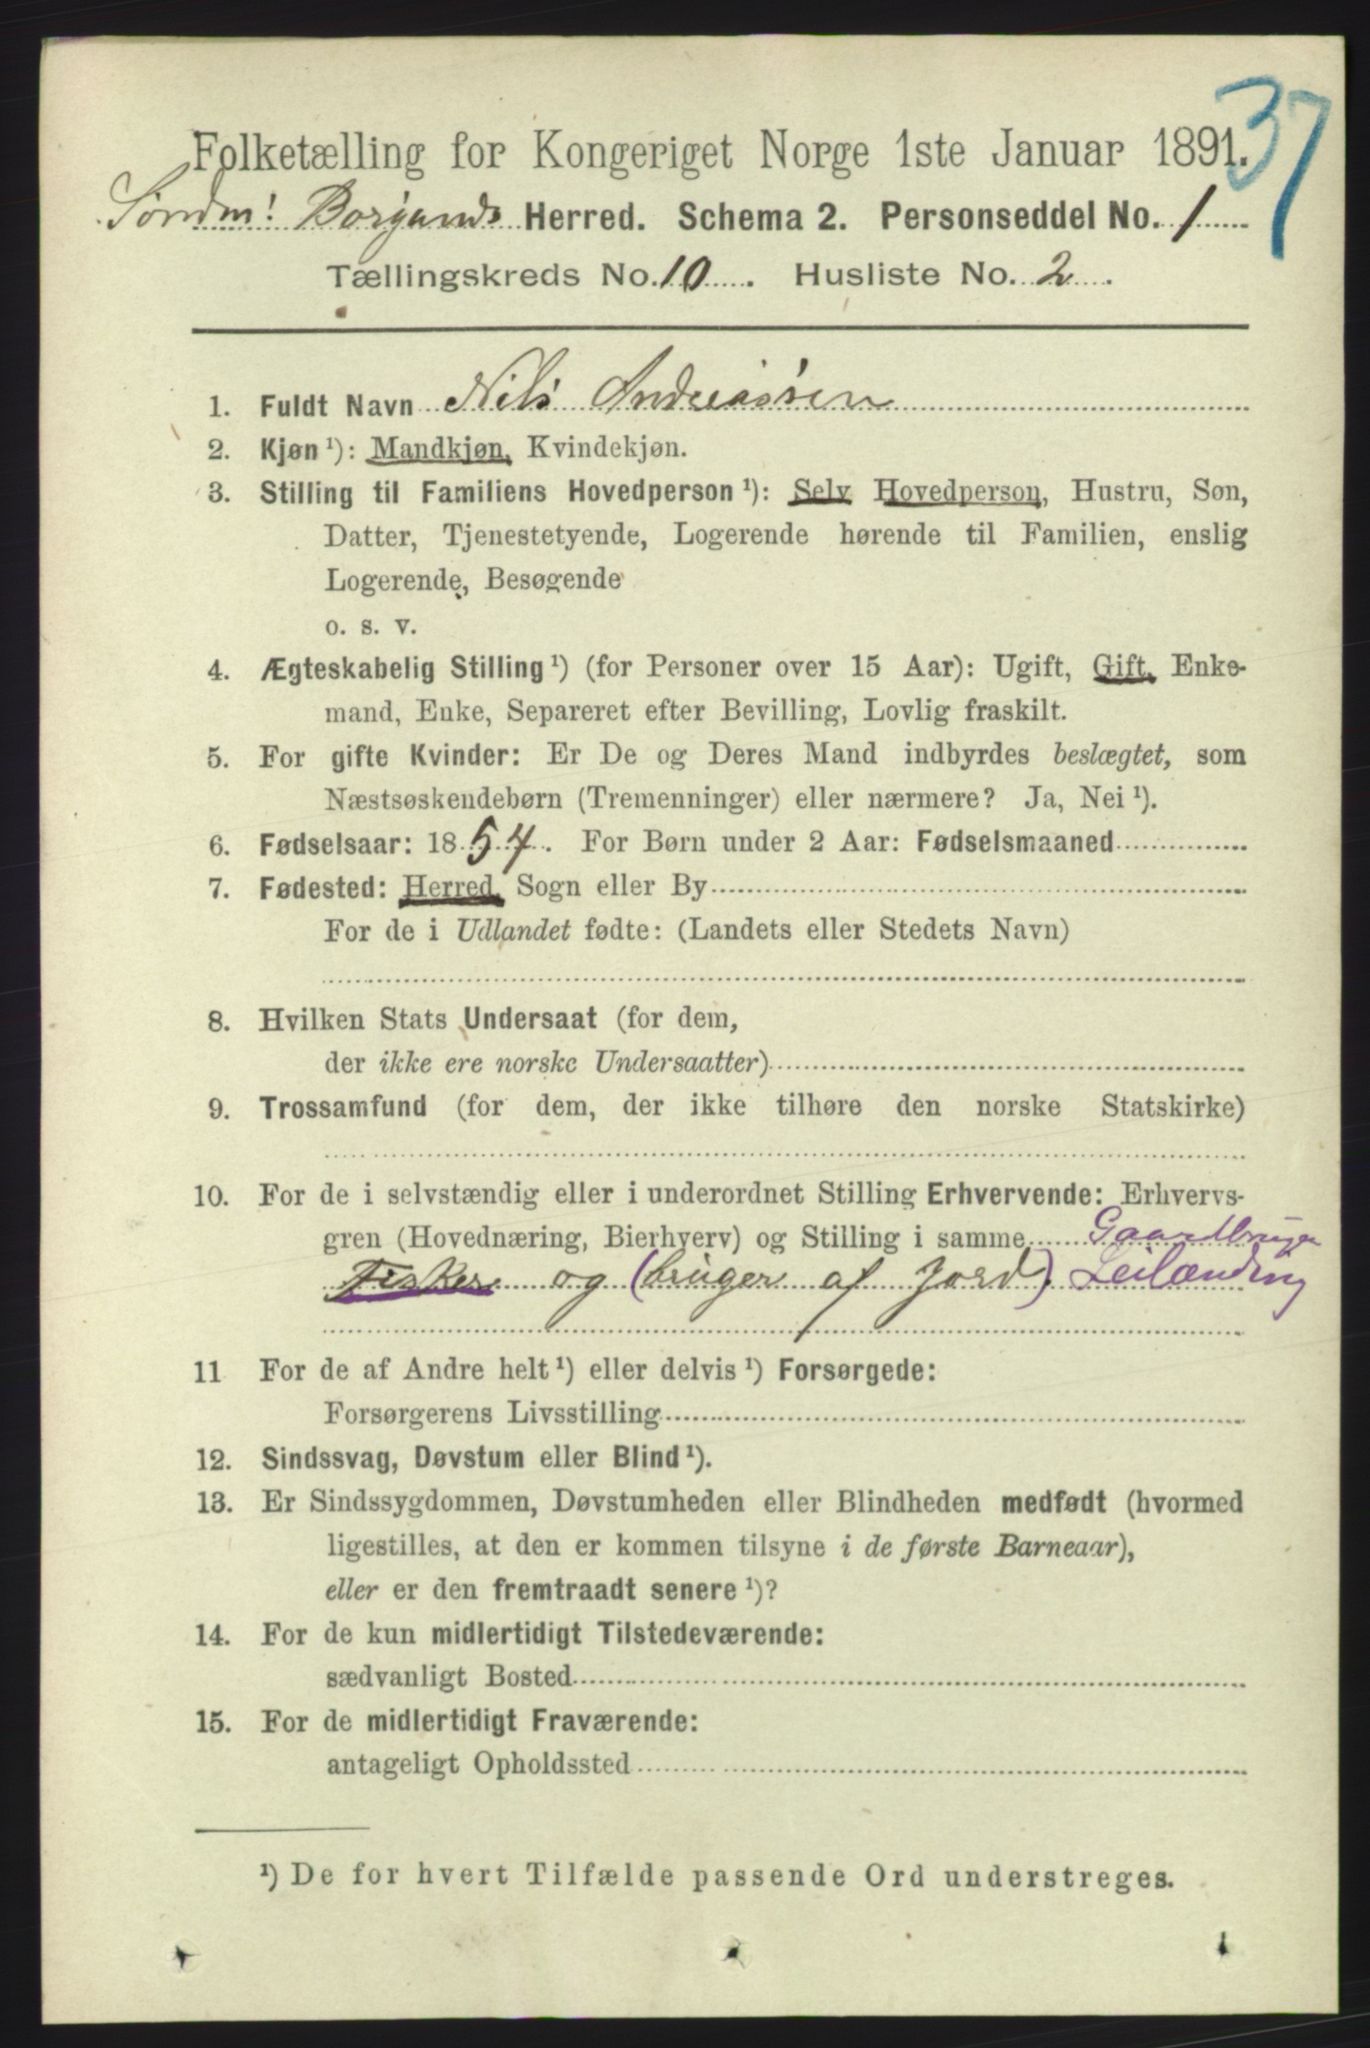 37
Folketælling for Kongeriget Norge 1ste Januar 1891.
Søndm: Borgunds Herred. Schema 2. Personseddel No. 1
Tællingskreds No. 10. Husliste No. 2.
1. Fuldt Navn Nils Andreassen
2. Kjøn¹): Mandkjøn, Kvindekjøn.
3. Stilling til Familiens Hovedperson¹): Selv Hovedperson, Hustru, Søn,
Datter, Tjenestetyende, Logerende hørende til Familien, enslig
Logerende, Besøgende
o. s. v.
4. Ægteskabelig Stilling¹) (for Personer over 15 Aar): Ugift, Gift, Enke-
mand, Enke, Separeret efter Bevilling, Lovlig fraskilt.
5. For gifte Kvinder: Er De og Deres Mand indbyrdes beslægtet, som
Næstsøskendebørn (Tremenninger) eller nærmere? Ja, Nei¹).
6. Fødselsaar: 1854. For Børn under 2 Aar: Fødselsmaaned
7. Fødested: Herred, Sogn eller By
For de i Udlandet fødte: (Landets eller Stedets Navn)
8. Hvilken Stats Undersaat (for dem,
der ikke ere norske Undersaatter)
9. Trossamfund (for dem, der ikke tilhøre den norske Statskirke)
10. For de i selvstændig eller i underordnet Stilling Erhvervende: Erhvervs-
gren (Hovednæring, Bierhverv) og Stilling i samme Gaardbruger
Fisker og (bruger af Jord) Leilænding
11 For de af Andre helt¹) eller delvis¹) Forsørgede:
Forsørgerens Livsstilling
12. Sindssvag, Døvstum eller Blind¹).
13. Er Sindssygdommen, Døvstumheden eller Blindheden medfødt (hvormed
ligestilles, at den er kommen tilsyne i de første Barneaar),
eller er den fremtraadt senere¹)?
14. For de kun midlertidigt Tilstedeværende:
sædvanligt Bosted
15. For de midlertidigt Fraværende:
antageligt Opholdssted
¹) De for hvert Tilfælde passende Ord understreges.